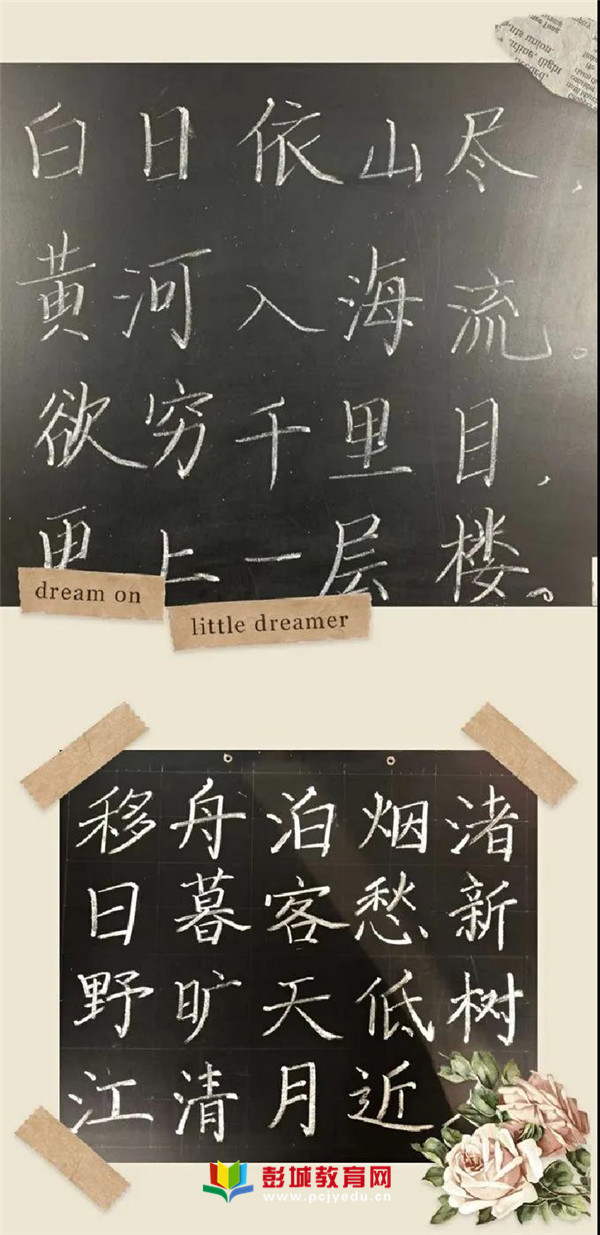 白日依山尽，
黄河入海流。
欲穷千里目，
更上一层楼。
dream on
little dreamer
移舟泊烟渚
日暮客愁新
野旷天低树
江清月近
彭城教育网
www.pcjyedu.cn